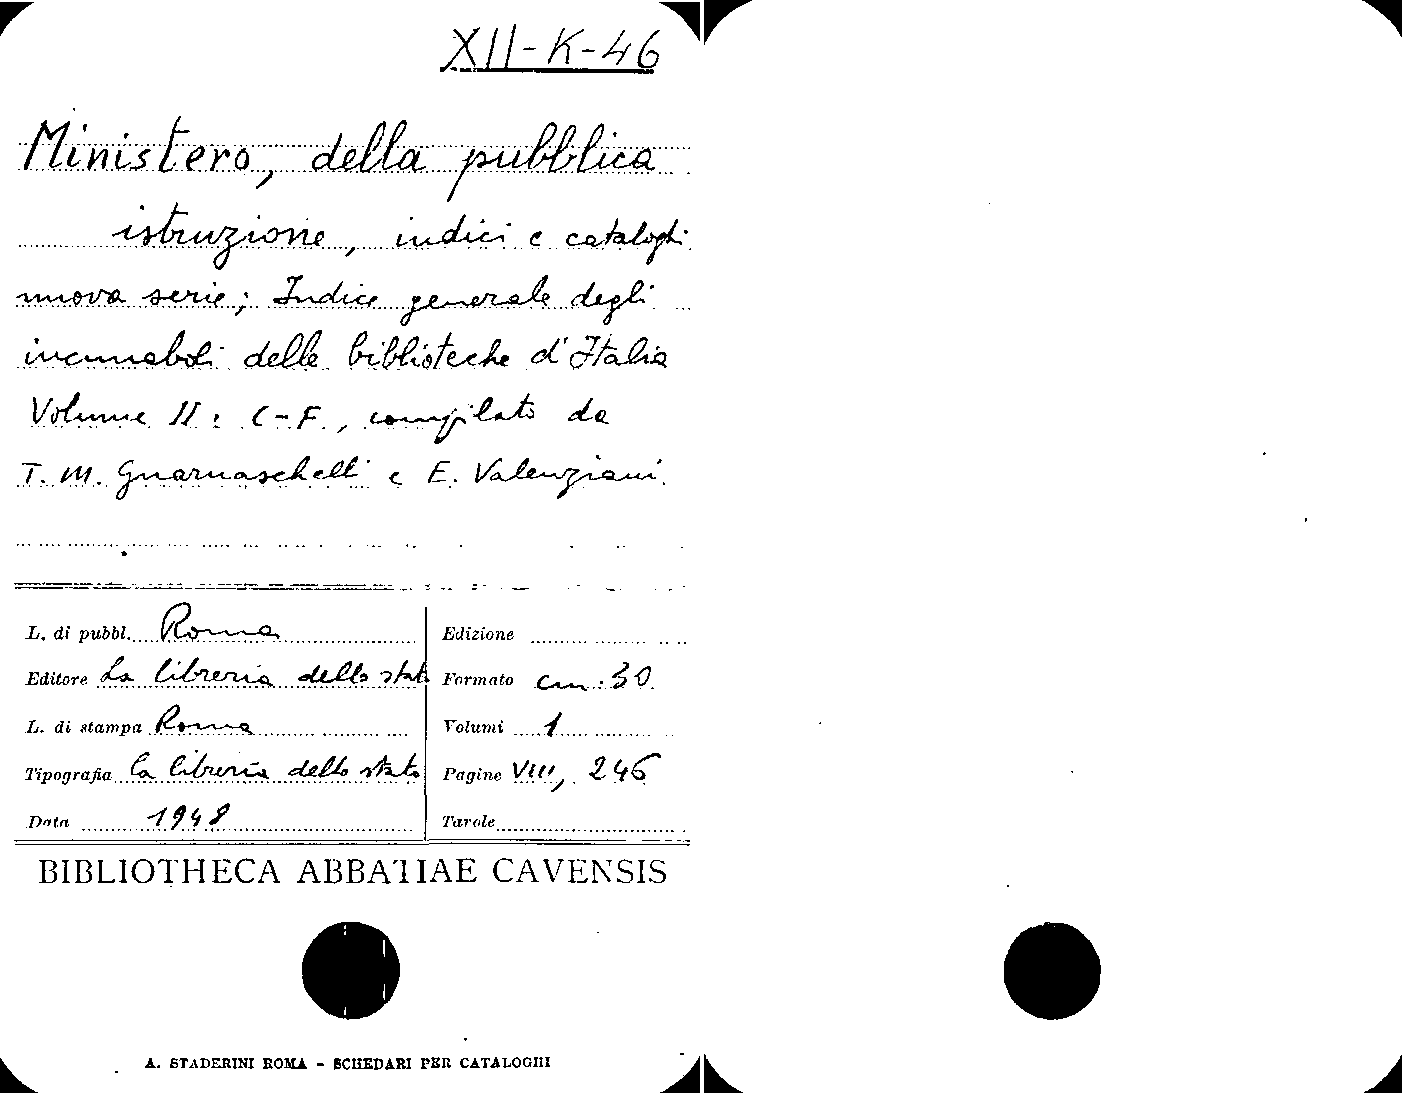 XII-K-46
Ministero, della pubblica
istruzione, indici e cataloghi
nuova serie; Indice generale degli
incunaboli delle biblioteche d'Italia
Volume II: C-F, compilato da
T. M. Guarnaschelli e E. Valenziani.
L. di pubbl. Roma
Edizione
Editore La libreria dello stato
Formato cm. 30
L. di stampa Roma
Volumi 1
Tipografia la libreria dello stato
Pagine VIII, 246
Data 1948
Tavole
BIBLIOTHECA ABBATIAE CAVENSIS
A. STADERINI ROMA - SCHEDARI PER CATALOGHI